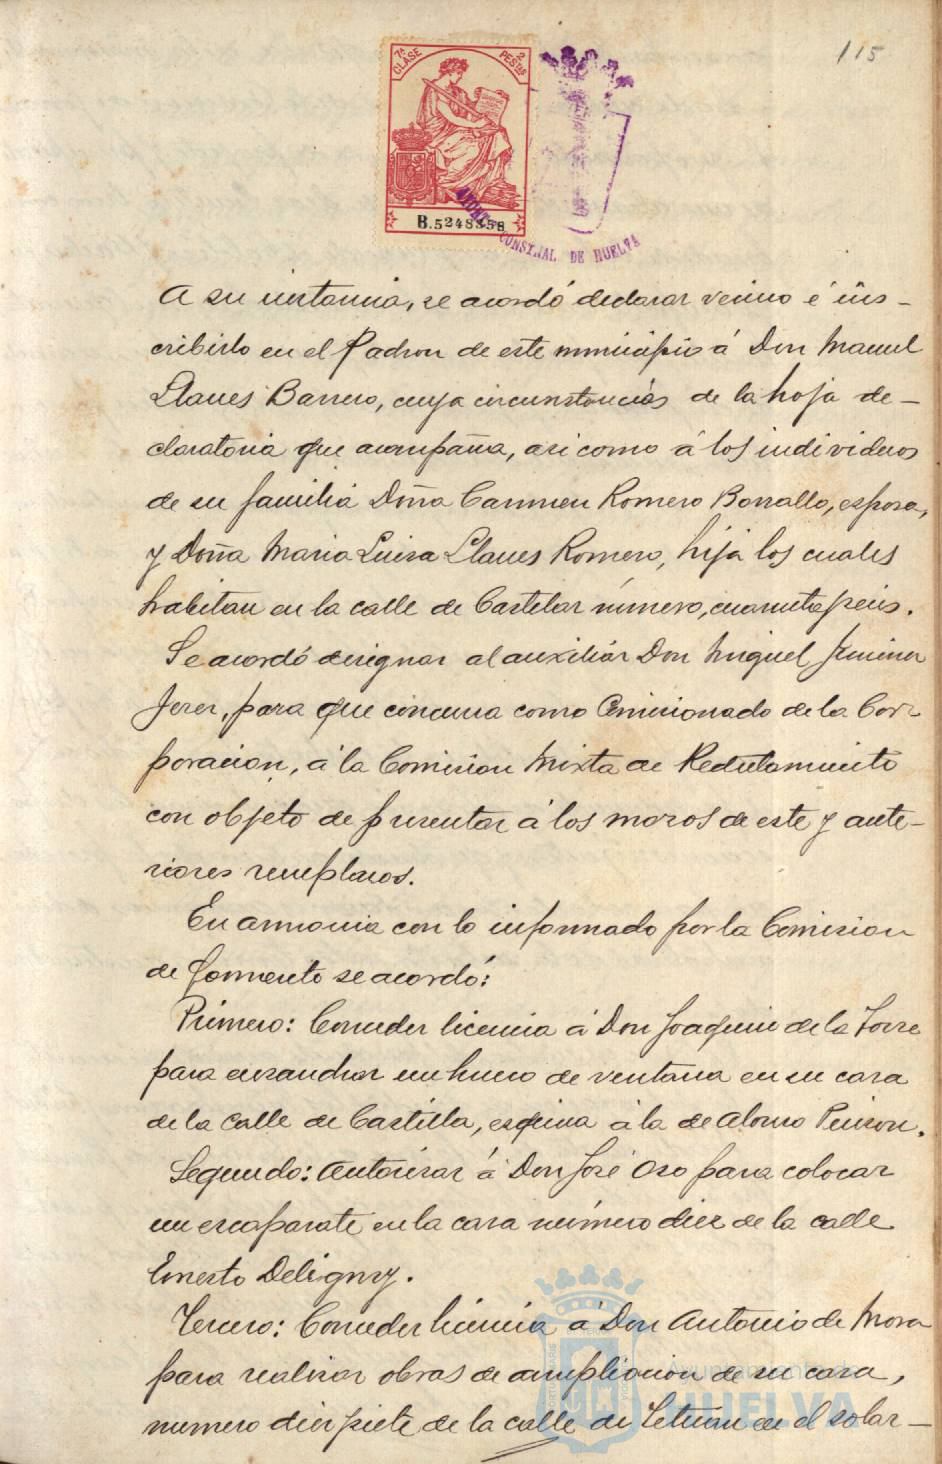 115
7ª CLASE
2 PESTAS
B.5248358
AYUNTO CONST.NAL DE HUELVA
A su instancia, se acordó declarar vecino é ins-
cribirlo en el Padron de este municipio á Don Manuel
Llanes Barrero, cuyas circunstancias de la hoja de-
claratoria que acompaña, asi como á los individuos
de su familia Doña Carmen Romero Borrallo, esposa,
y Doña Maria Luisa Llanes Romero, hija los cuales
habitan en la calle de Castelar número, cuarenta y seis.
Se acordó designar al auxiliar Don Miguel Jimenez
Jerez, para que concurra como Comisionado de la Cor-
poracion, á la Comision Mixta de Reclutamiento
con objeto de presentar á los mozos de este y ante-
riores remplazos.
En armonia con lo informado por la Comision
de Fomento se acordó:
Primero: Conceder licencia á Don Joaquin de la Torre
para ensanchar un hueco de ventana en su casa
de la calle de Castilla, esquina á la de Alonso Pinzon.
Segundo: Autorizar á Don José Oso para colocar
un escaparate en la casa número diez de la calle
Ernesto Deligny.
Tercero: Conceder licencia á Don Antonio de Mora
para realizar obras de ampliacion de su casa,
numero diez y siete de la calle de Tetuan en el solar-
Ayuntamiento de
HUELVA